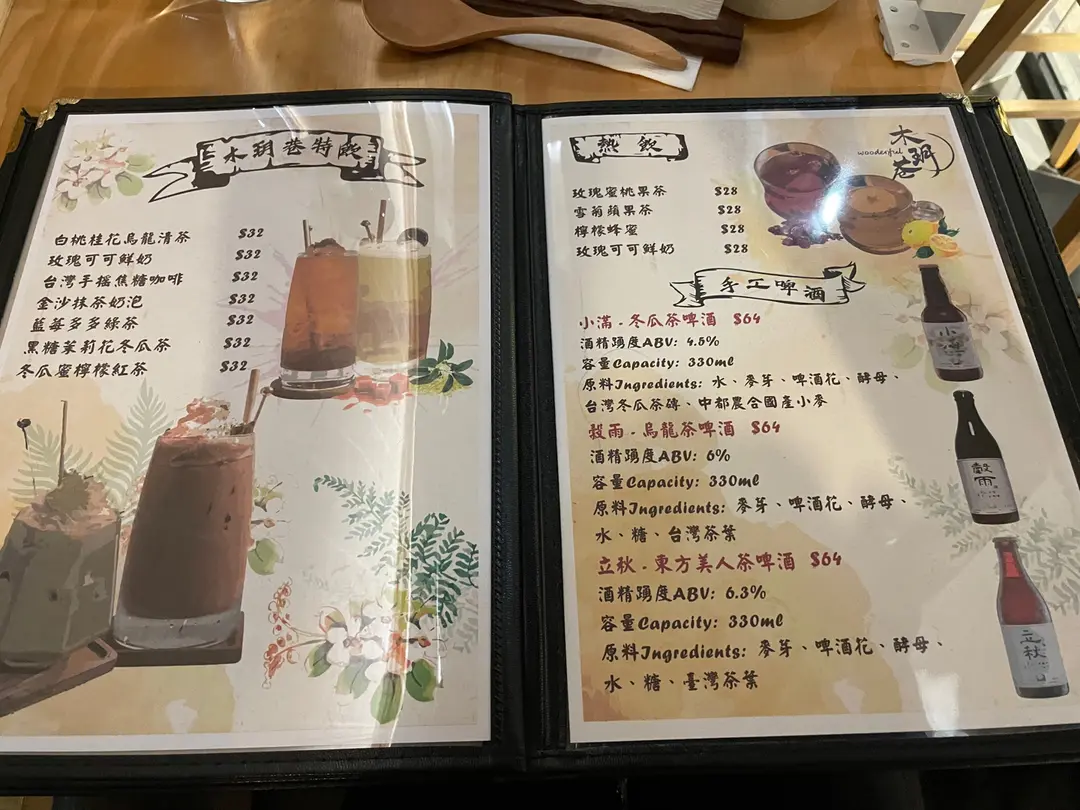 木玥巷特飲
白桃桂花烏龍清茶 $32
玫瑰可可鮮奶 $32
台灣手搖焦糖咖啡 $32
金沙抹茶奶泡 $32
藍莓多多綠茶 $32
黑糖茉莉花冬瓜茶 $32
冬瓜蜜檸檬紅茶 $32
熱飲
木玥巷
wooderful
玫瑰蜜桃果茶 $28
雪菊蘋果茶 $28
檸檬蜂蜜 $28
玫瑰可可鮮奶 $28
手工啤酒
小滿 - 冬瓜茶啤酒 $64
酒精踴度ABV: 4.5%
容量Capacity: 330ml
原料Ingredients: 水、麥芽、啤酒花、酵母、
台灣冬瓜茶磚、中都農合國產小麥
穀雨 - 烏龍茶啤酒 $64
酒精踴度ABV: 6%
容量Capacity: 330ml
原料Ingredients: 麥芽、啤酒花、酵母、
水、糖、台灣茶葉
立秋 - 東方美人茶啤酒 $64
酒精踴度ABV: 6.3%
容量Capacity: 330ml
原料Ingredients: 麥芽、啤酒花、酵母、
水、糖、臺灣茶葉
小滿
穀雨
立秋